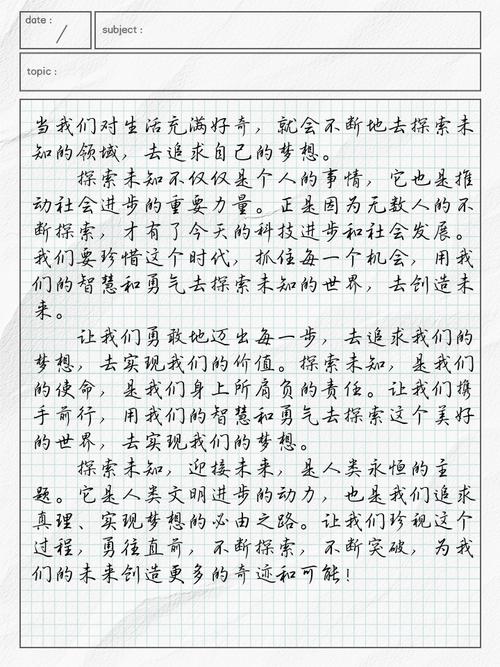 date :
subject :
topic :
当我们对生活充满好奇，就会不断地去探索未
知的领域，去追求自己的梦想。
探索未知不仅仅是个人的事情，它也是推
动社会进步的重要力量。正是因为无数人的不
断探索，才有了今天的科技进步和社会发展。
我们要珍惜这个时代，抓住每一个机会，用我
们的智慧和勇气去探索未知的世界，去创造未
来。
让我们勇敢地迈出每一步，去追求我们的
梦想，去实现我们的价值。探索未知，是我们
的使命，是我们身上所肩负的责任。让我们携
手前行，用我们的智慧和勇气去探索这个美好
的世界，去实现我们的梦想。
探索未知，迎接未来，是人类永恒的主
题。它是人类文明进步的动力，也是我们追求
真理、实现梦想的必由之路。让我们珍视这个
过程，勇往直前，不断探索，不断突破，为我
们的未来创造更多的奇迹和可能！